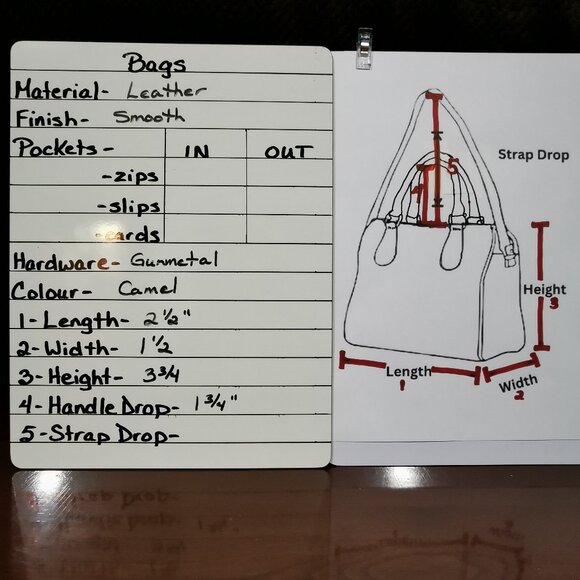 Bags
Material- Leather
Finish- Smooth
Pockets- IN OUT
-zips
-slips
-cards
Hardware- Gunmetal
Colour- Camel
1-Length- 2 1/2"
2-Width- 1 1/2
3-Height- 3 3/4
4-Handle Drop- 1 3/4"
5-Strap Drop-
Strap Drop
5
4
Height
3
Length
1
Width
2